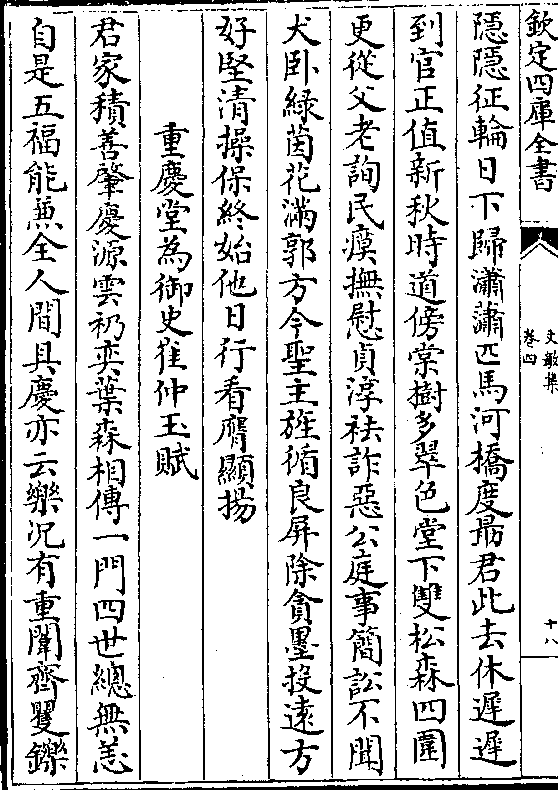 欽定四庫全書
文敏集
卷四
十八
隠隠征輪日下歸瀟蕭匹馬河橋度勗君此去休遲遲
到官正值新秋時道傍棠樹多翠色堂下雙松森四圍
更從父老詢民瘼撫慰貞淳袪詐惡公庭事簡訟不聞
犬卧緑茵花滿郭方今聖主旌循良屏除貪墨投遠方
好堅清操保終始他日行看膺顯揚
重慶堂為御史崔仲玉賦
君家積善肇慶源雲礽奕葉森相傳一門四世總無恙
自是五福能兼全人間具慶亦云樂况有重闈齊矍鑠